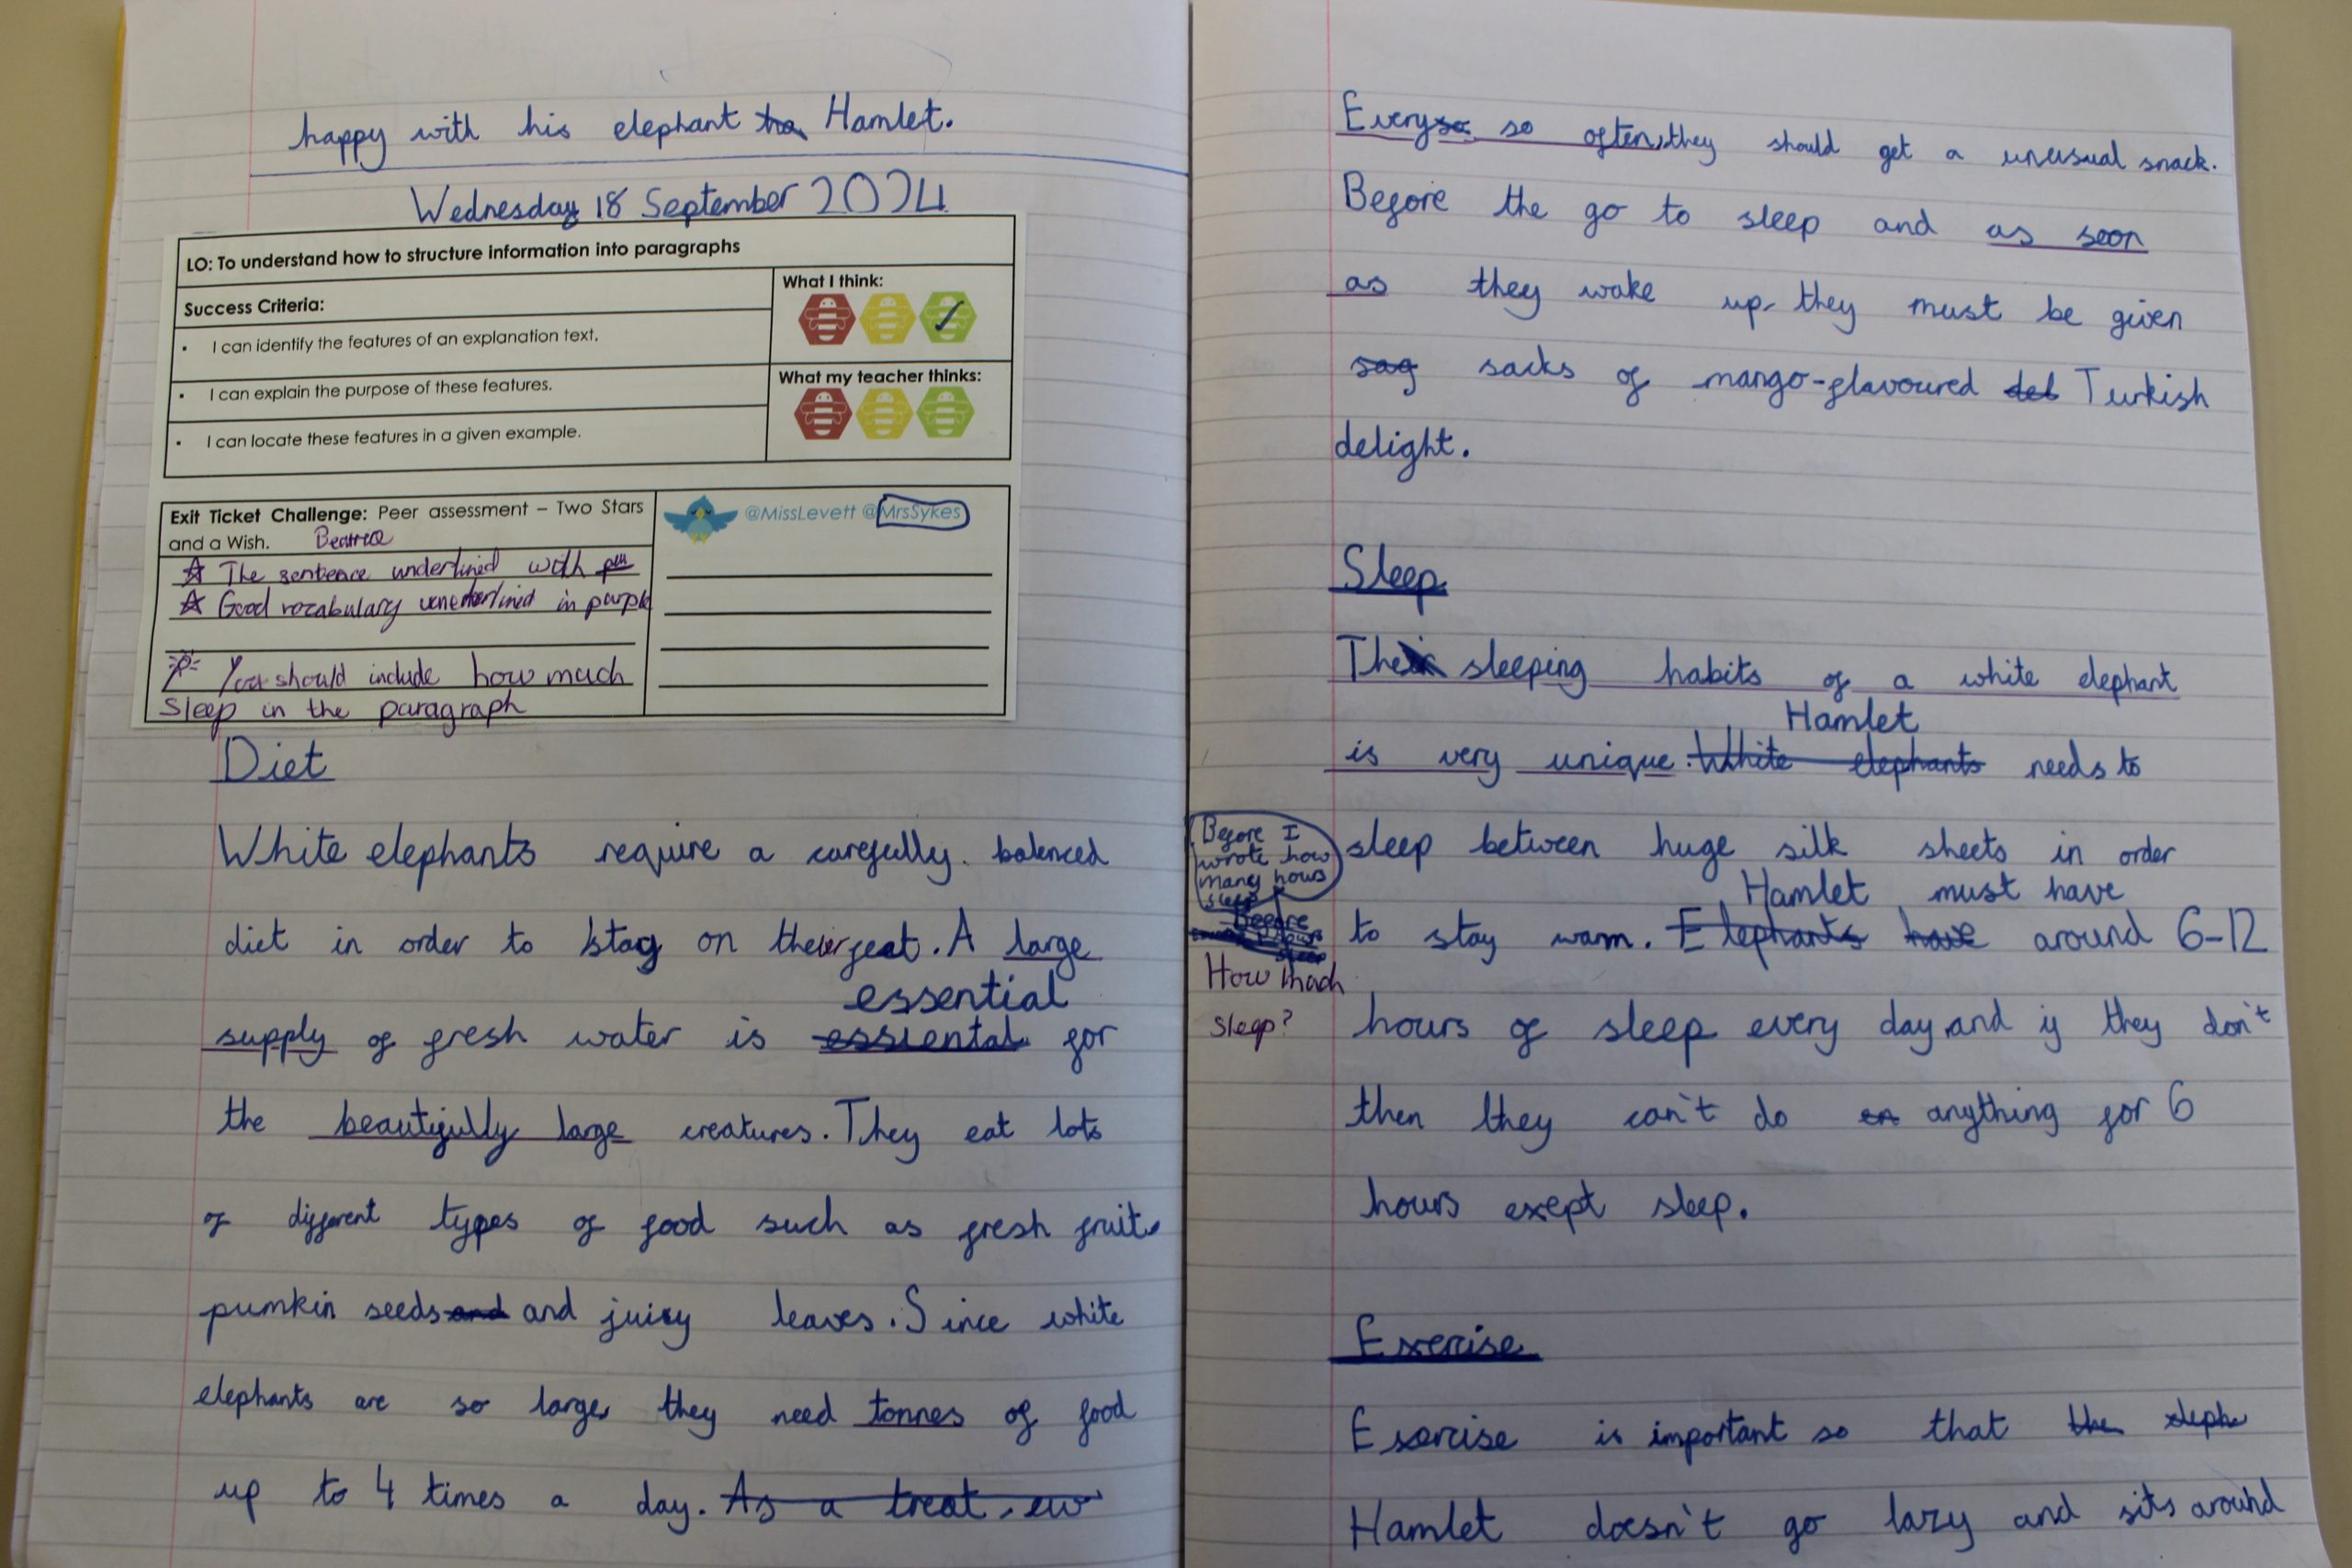 happy with his elephant ha Hamlet.
Wednesday 18 September 2024
LO: To understand how to structure information into paragraphs
Success Criteria:
• I can identify the features of an explanation text.
• I can explain the purpose of these features.
• I can locate these features in a given example.
What I think:
What my teacher thinks:
Exit Ticket Challenge: Peer assessment – Two Stars
and a Wish. Beatrice
☆ The sentence underlined with
☆ Good vocabulary underlined in purple
You should include how much
Sleep in the paragraph
@MissLevett @MrsSykes
Diet
White elephants require a carefully balenced
diet in order to stay on their feet. A large
essential
supply of fresh water is essiental for
the beautifully large creatures. They eat lots
of different types of food such as fresh fruit,
pumkin seeds and and juicy leaves. Since white
elephants are so large, they need tonnes of food
up to 4 times a day. As a treat, ew
Every so so often, they should get a unusual snack.
Before the go to sleep and as soon
as they wake up, they must be given
sag sacks of mango-flavoured del Turkish
delight.
Sleep
The sleeping habits of a white elephant
Hamlet
is very unique. White elephants needs to
Before I
wrote how
many hours
sleep
sleep between huge silk sheets in order
Hamlet must have
to stay warm. Elephants have around 6-12
How much
sleep?
hours of sleep every day, and if they don't
then they can't do en anything for 6
hours exept sleep.
Exercise
Exercise is important so that the eleph
Hamlet doesn't go lazy and sits around